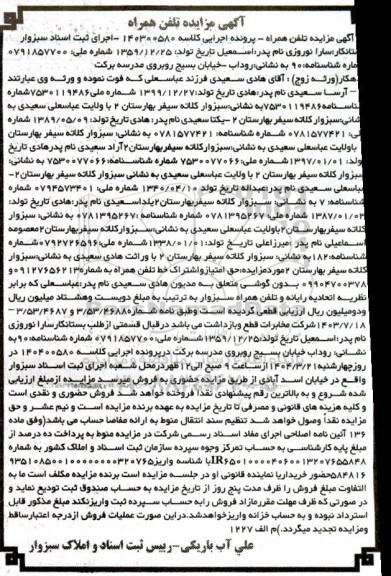 آگهی مزایده تلفن همراه
آگهی مزایده تلفن همراه - پرونده اجرایی کلاسه ۱۴۰۳۰۰۵۸۰ -اجرای ثبت اسناد سبزوار
ستانکار:سارا نوروزی نام پدر:اسمعیل تاریخ تولد: ۱۳۵۹/۱۲/۲۵ شماره ملی: ۰۷۹۱۸۵۷۷۰۰
شماره شناسنامه: ۹۰ به نشانی:روداب -خیابان بسیج روبروی مدرسه برکت
هکار(ورثه زوج) : آقای هادی سعیدی فرزند عباسعلی که فوت نموده و ورثه وی عبارتند
- آرسا سعیدی نام پدر:هادی تاریخ تولد:۱۳۹۹/۱۲/۲۷ شماره ملی: ۷۵۳۰۱۱۹۴۸۶شماره
شناسنامه۷۵۳۰۱۱۹۴۸۶به نشانی:سبزوار کلاته سیفر بهارستان ۲ با ولایت عباسعلی سعیدی به
شانی:کلاته سیفر بهارستان ۲ -یکتا سعیدی نام پدر: هادی تاریخ تولد: ۱۳۸۹/۰۵/۰۹ شماره
ملی: ۰۷۸۱۵۷۷۴۲۱ شماره شناسنامه: ۰۷۸۱۵۷۷۴۲۱ به نشانی: سبزوار کلاته سیفر بهارستان
۲ باولایت عباسعلی سعیدی به نشانی:سبزوار کلاته سیفر بهارستان۲آراد سعیدی نام پدر هادی تاریخ
تولد: ۱۳۹۷/۰۱/۰۱ شماره ملی: ۷۵۳۰۰۷۷۰۶۶ شماره شناسنامه: ۷۵۳۰۰۷۷۰۶۶ به نشانی:
سبزوار کلاته سیفر بهارستان ۲ با ولایت عباسعلی سعیدی به نشانی سبزوار کلاته سیفر بهارستان ۲-
عباسعلی سعیدی نام پدر:عبداله تاریخ تولد: ۱۳۴۰/۰۴/۱۰ شماره ملی: ۰۷۹۴۵۷۳۴۰۱ شماره
شناسنامه: ۷ به نشانی: سبزوار کلاته سیفربهارستان۲یلداسعیدی نام پدر:هادی تاریخ تولد:
۱۳۸۷/۰۱/۰۲ شماره ملی: ۰۷۸۱۳۹۵۲۶۷ شماره شناسنامه: ۰۷۸۱۳۹۵۲۶۷ به نشانی: سبزوار
کلاته سیفربهارستان۲باولایت عباسعلی سعیدی به نشانی: سبزوارکلاته سیفربهارستان۲معصومه
اسماعیلی نام پدر :میرزاعلی تاریخ تولد: ۱۳۳۸/۰۱/۰۱ شماره ملی: ۰۷۹۲۷۲۶۵۹۶شماره
شناسنامه:۱۸۲به نشانی:سبزوار کلاته سیفر بهارستان ۲ با وراثت هادی سعیدی به نشانی:سبزوار
کلاته سیفر بهارستان ۲موردمزایده:حق امتیازواشتراک خط تلفن همراه به شماره۰۹۱۲۷۶۵۶۲۱۳ و
۰۹۹۰۴۷۰۰۳۷۸ بدون گوشی متعلق به مدیون هادی سعیدی نام پدر:عباسعلی که برابر
نظریه اتحادیه رایانه و تلفن همراه سبزوار به ترتیب به مبلغ دویست وهشتاد میلیون ریال
ودومیلیون ریال ارزیابی قطعی گردیده است وطبق نامه شماره۳/۵۳/۴۶۸۸ و ۳/۵۳/۴۶۸۷ -
۱۴۰۳/۷/۱۸شرکت مخابرات قطع وبازداشت می باشد درقبال قسمتی ازطلب بستانکارسارا نوروزی
نام پدر:اسمعیل تاریخ تولد:۱۳۵۹/۱۲/۲۵شماره ملی:۰۷۹۱۸۵۷۷۰۰شماره شناسنامه:۹۰به
نشانی: روداب خیابان بسیج روبروی مدرسه برکت درپرونده اجرایی کلاسه ۱۴۰۴۰۰۵۸۰ در
روزچهارشنبه ۱۴۰۴/۳/۲۱ ازساعت ۹ صبح الی۱۲ظهردرمحل شعبه اجرای ثبت اسناد سبزوار
واقع در خیابان اسد آبادی از طریق مزایده حضوری به فروش میرسد مزایده ازمبلغ ارزیابی
شده شروع و به بالاترین رقم پیشنهادی نقدا فروخته خواهد شد فروش حضوری و نقدی است
و کلیه هزینه های قانونی و مصرفی تا تاریخ مزایده به عهده برنده مزایده است و نیم عشر و حق
مزایده نقداً وصول خواهد شد تنظیم سند انتقال منوط به ارائه مفاصا حساب می باشد(وفق ماده
۱۳۶ آئین نامه اصلاحی اجرای مفاد اسناد رسمی شرکت در مزایده منوط به پرداخت ده درصد از
مبلغ پایه کارشناسی به حساب تمرکز وجوه سپرده سازمان ثبت اسناد و املاک کشور به شماره
حضور خریداریا نماینده قانونی او در جلسه مزایده است برنده مزایده مکلف است ما به
التفاوت مبلغ فروش را ظرف مدت پنج روز از تاریخ مزایده به حساب صندوق ثبت تودیع نماید و
در صورتی که ظرف مهلت مقررمازاد فروش رابه حساب سپرده ثبت واریزنکند مبلغ مذکور قابل
استرداد نبوده و به حساب خزانه واریزخواهدشد.دراین صورت عملیات فروش ازدرجه اعتبارساقط
ومزایده تجدید میگردد.)م الف ۱۲۲۷
علی آب باریکی-رییس ثبت اسناد و املاک سبزوار